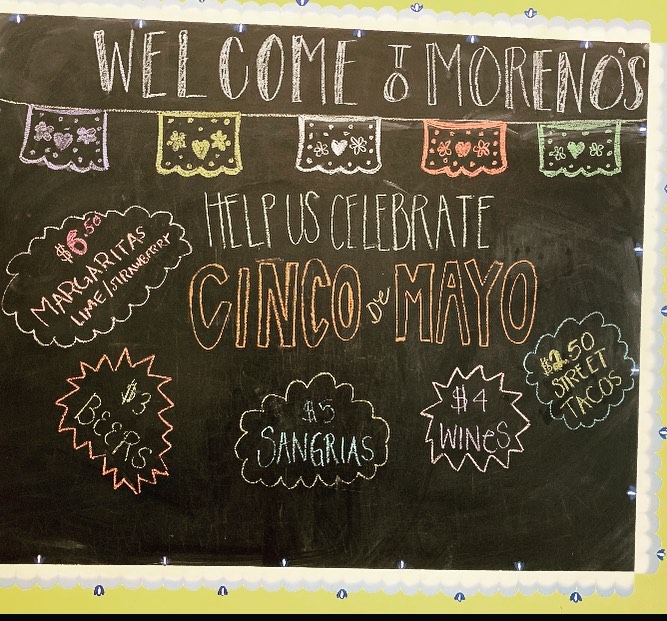 WELCOME TO MORENO'S
HELP US CELEBRATE
CINCO DE MAYO
$6.50
MARGARITAS
LIME/STRAWBERRY
$3
BEERS
$5
SANGRIAS
$4
WINES
$2.50
STREET
TACOS